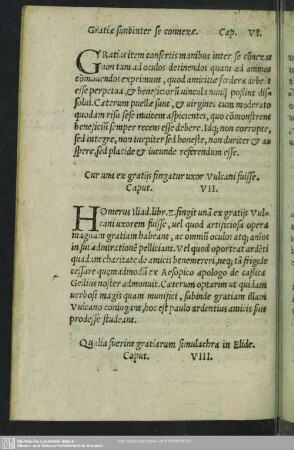 Gratiæ sunt inter se connexæ. Cap. VI.
GRatias item consertis manibus inter se cōnexas
non tam ad oculos detinendos quam ad animos
cōmouendos exprimunt, quod amicitiæ fœdera debeāt
esse perpetua & beneficiorū uincula nunq̄ possint dis
solui. Cæterum puellæ sunt, & uirgines cum moderato
quodam risu sese inuicem aspicientes, quo cōmonstrent
beneficiū semper recens esse debere. Idq; non corrupte,
sed integre, non turpiter sed honeste, non duriter & a
spere, sed placide & iucunde referendum esse.
Cur una ex gratijs fingatur uxor Vulcani fuisse.
Caput. VII.
HOmerus Iliad. libr. z. fingit unā ex gratijs Vul
cani uxorem fuisse, uel quod artificiosa opera
magnam gratiam habeant, ac omniū oculos atq; animos
in sui admirationē pelliciant. Vel quod oporteat ardēti
quadam charitate de amicis benemereri, neq; tā frigide
cessare quemadmodū ex Aesopico apologo de cassita
Gellius noster admonuit. Cæterum optarim ut quidam
uerbosi magis quam munifici, subinde gratiam illam
Vulcano coniugant, hoc est paulo ardentius amicis suis
prodesse studeant.
Qualia fuerint gratiarum simulachra in Elide.
Caput. VIII.